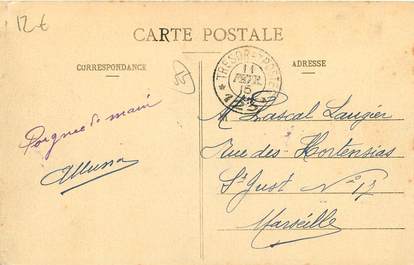 12 €
CARTE POSTALE
CORRESPONDANCE
ADRESSE
TRESOR ET POSTES
11
FEVR
15
Poignée de main
M Pascal Laugier
rue des Hortensias
St Just No 17
Marseille